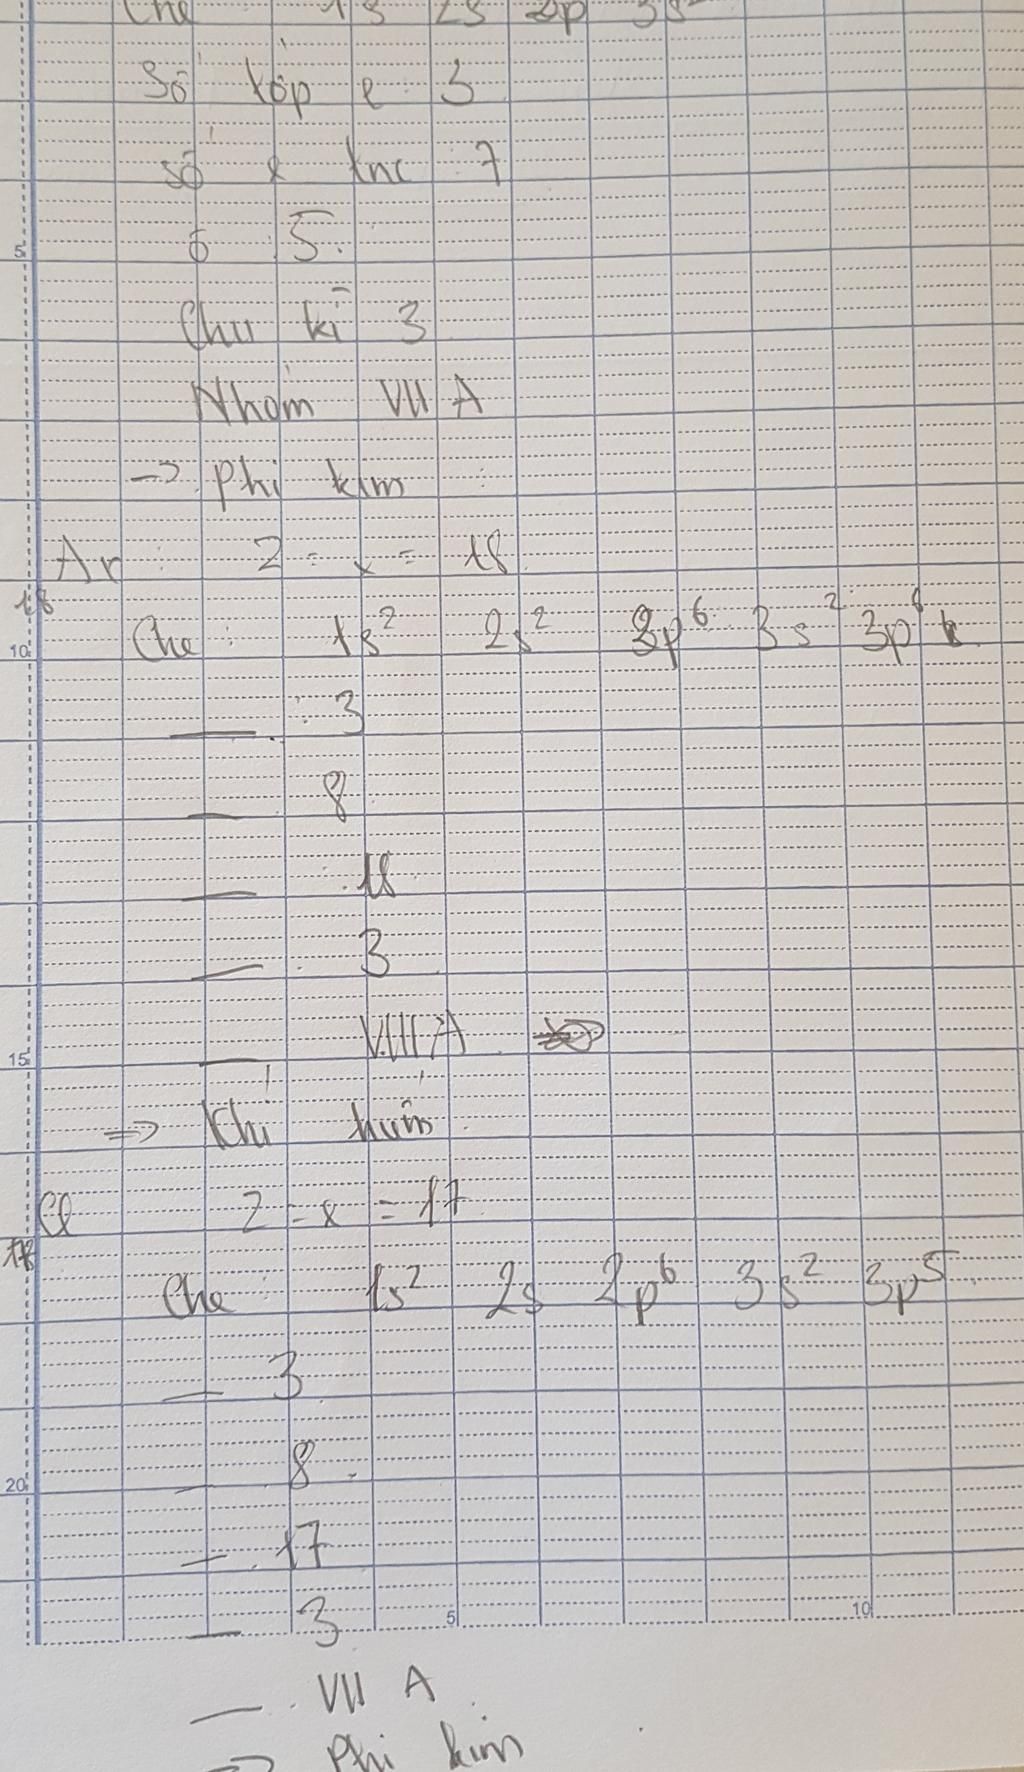 Che 1s 2s 2p 3s
Số lớp e 3
số e lnc 7
ô 5.
Chu kì 3
Nhóm VII A
-> phi kim
Ar : Z = x = 18
18
Che : 1s² 2s² 2p⁶ 3s² 3p⁶
— : 3
— 8
— : 18
— : 3
— VIIIA
=> Khí hiếm
Cl Z = x = 17
Che : 1s² 2s 2p⁶ 3s² 3p⁵
— 3
— 8
— 17
— 3
— VII A
=> Phi kim
5
10
15
20
5
10